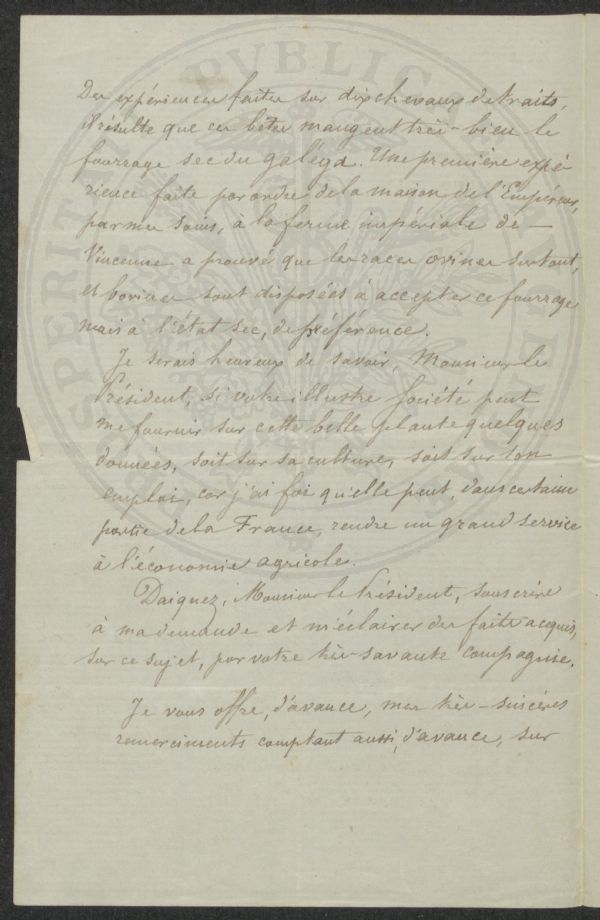 Des expériences faites sur dix chevaux de traits,
il résulte que ces bêtes mangent très-bien le
fourrage sec du galéga. Une première expé
rience faite par ordre de la maison de l'Empereur,
par mes soins, à la ferme impériale de
Vincenne a prouvé que les races ovines surtout,
et bovines sont disposées à accepter ce fourrage
mais à l'état sec, de préférence.
Je serais heureux de savoir, Monsieur le
Président, si votre illustre Société peut
me fournir sur cette belle plante quelques
données, soit sur sa culture, soit sur son
emploi, car j'ai foi qu'elle peut, dans certaine
partie de la France, rendre un grand service
à l'économie agricole.
Daignez, Monsieur le Président, souscrire
à ma demande et m'éclairer des faits acquis,
sur ce sujet, par votre très-savante compagnie.
Je vous offre, d'avance, mes très-sincères
remerciments comptant aussi, d'avance, sur
PUBLICA